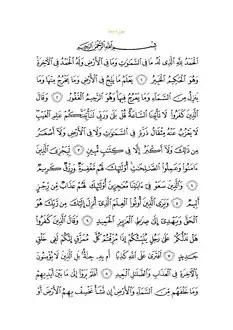 بِسْمِ ٱللَّهِ ٱلرَّحْمَٰنِ ٱلرَّحِيمِ
ٱلْحَمْدُ لِلَّهِ ٱلَّذِى لَهُۥ مَا فِى ٱلسَّمَٰوَٰتِ وَمَا فِى ٱلْأَرْضِ وَلَهُ ٱلْحَمْدُ فِى ٱلْءَاخِرَةِ
وَهُوَ ٱلْحَكِيمُ ٱلْخَبِيرُ ١ يَعْلَمُ مَا يَلِجُ فِى ٱلْأَرْضِ وَمَا يَخْرُجُ مِنْهَا وَمَا
يَنزِلُ مِنَ ٱلسَّمَآءِ وَمَا يَعْرُجُ فِيهَا وَهُوَ ٱلرَّحِيمُ ٱلْغَفُورُ ٢ وَقَالَ
ٱلَّذِينَ كَفَرُوا۟ لَا تَأْتِينَا ٱلسَّاعَةُ قُلْ بَلَىٰ وَرَبِّى لَتَأْتِيَنَّكُمْ عَٰلِمِ ٱلْغَيْبِ
لَا يَعْزُبُ عَنْهُ مِثْقَالُ ذَرَّةٍ فِى ٱلسَّمَٰوَٰتِ وَلَا فِى ٱلْأَرْضِ وَلَآ أَصْغَرُ
مِن ذَٰلِكَ وَلَآ أَكْبَرُ إِلَّا فِى كِتَٰبٍ مُّبِينٍ ٣ لِّيَجْزِىَ ٱلَّذِينَ
ءَامَنُوا۟ وَعَمِلُوا۟ ٱلصَّٰلِحَٰتِ أُو۟لَٰٓئِكَ لَهُم مَّغْفِرَةٌ وَرِزْقٌ كَرِيمٌ
٤ وَٱلَّذِينَ سَعَوْ فِىٓ ءَايَٰتِنَا مُعَٰجِزِينَ أُو۟لَٰٓئِكَ لَهُمْ عَذَابٌ مِّن رِّجْزٍ
أَلِيمٌ ٥ وَيَرَى ٱلَّذِينَ أُوتُوا۟ ٱلْعِلْمَ ٱلَّذِىٓ أُنزِلَ إِلَيْكَ مِن رَّبِّكَ هُوَ
ٱلْحَقَّ وَيَهْدِىٓ إِلَىٰ صِرَٰطِ ٱلْعَزِيزِ ٱلْحَمِيدِ ٦ وَقَالَ ٱلَّذِينَ كَفَرُوا۟
هَلْ نَدُلُّكُمْ عَلَىٰ رَجُلٍ يُنَبِّئُكُمْ إِذَا مُزِّقْتُمْ كُلَّ مُمَزَّقٍ إِنَّكُمْ لَفِى خَلْقٍ
جَدِيدٍ ٧ أَفْتَرَىٰ عَلَى ٱللَّهِ كَذِبًا أَم بِهِۦ جِنَّةٌۢ بَلِ ٱلَّذِينَ لَا يُؤْمِنُونَ
بِٱلْءَاخِرَةِ فِى ٱلْعَذَابِ وَٱلضَّلَٰلِ ٱلْبَعِيدِ ٨ أَفَلَمْ يَرَوْا۟ إِلَىٰ مَا بَيْنَ أَيْدِيهِمْ
وَمَا خَلْفَهُم مِّنَ ٱلسَّمَآءِ وَٱلْأَرْضِ إِن نَّشَأْ نَخْسِفْ بِهِمُ ٱلْأَرْضَ أَوْ